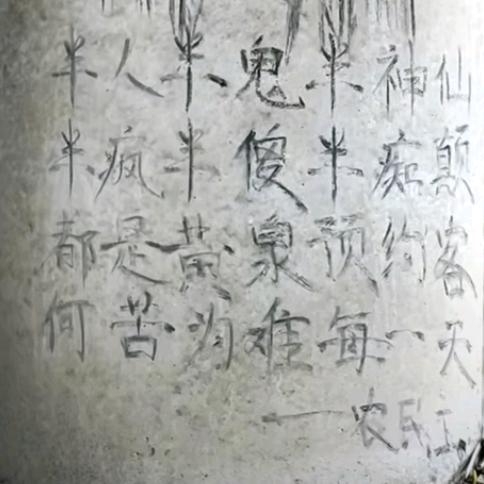 半人半鬼半神仙
半疯半傻半痴颠
都是黄泉预约客
何苦为难每一天
——农民工